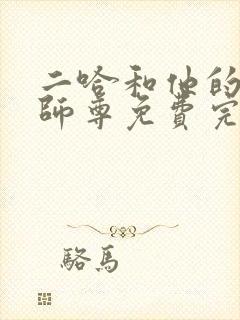 二哈和他的
師尊免費完
駱馬